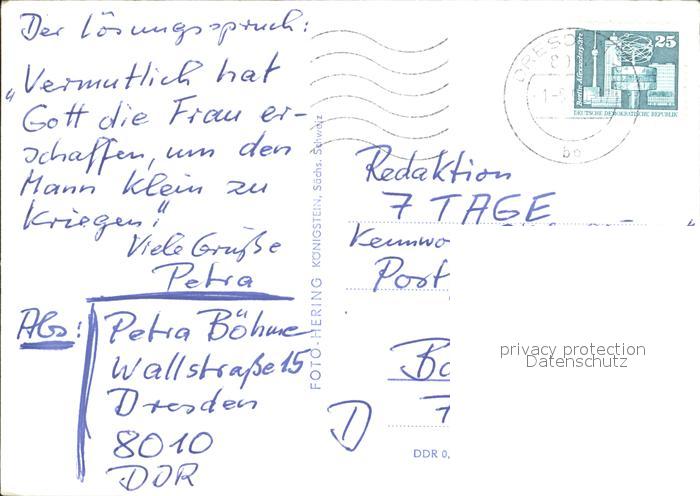 Der Lösungsspruch:
„Vermutlich hat
Gott die Frau er-
schaffen, um den
Mann klein zu
kriegen."
Viele Grüße
Petra
Abs:
Petra Böhme
Wallstraße 15
Dresden
8010
DDR
FOTO-HERING KÖNIGSTEIN, Sächs. Schweiz
DRES
80
25
Berlin, Alexanderplatz
DEUTSCHE DEMOKRATISCHE REPUBLIK
Redaktion
7 TAGE
Kennwo
Post
Ba
7
D
DDR 0,
privacy protection
Datenschutz